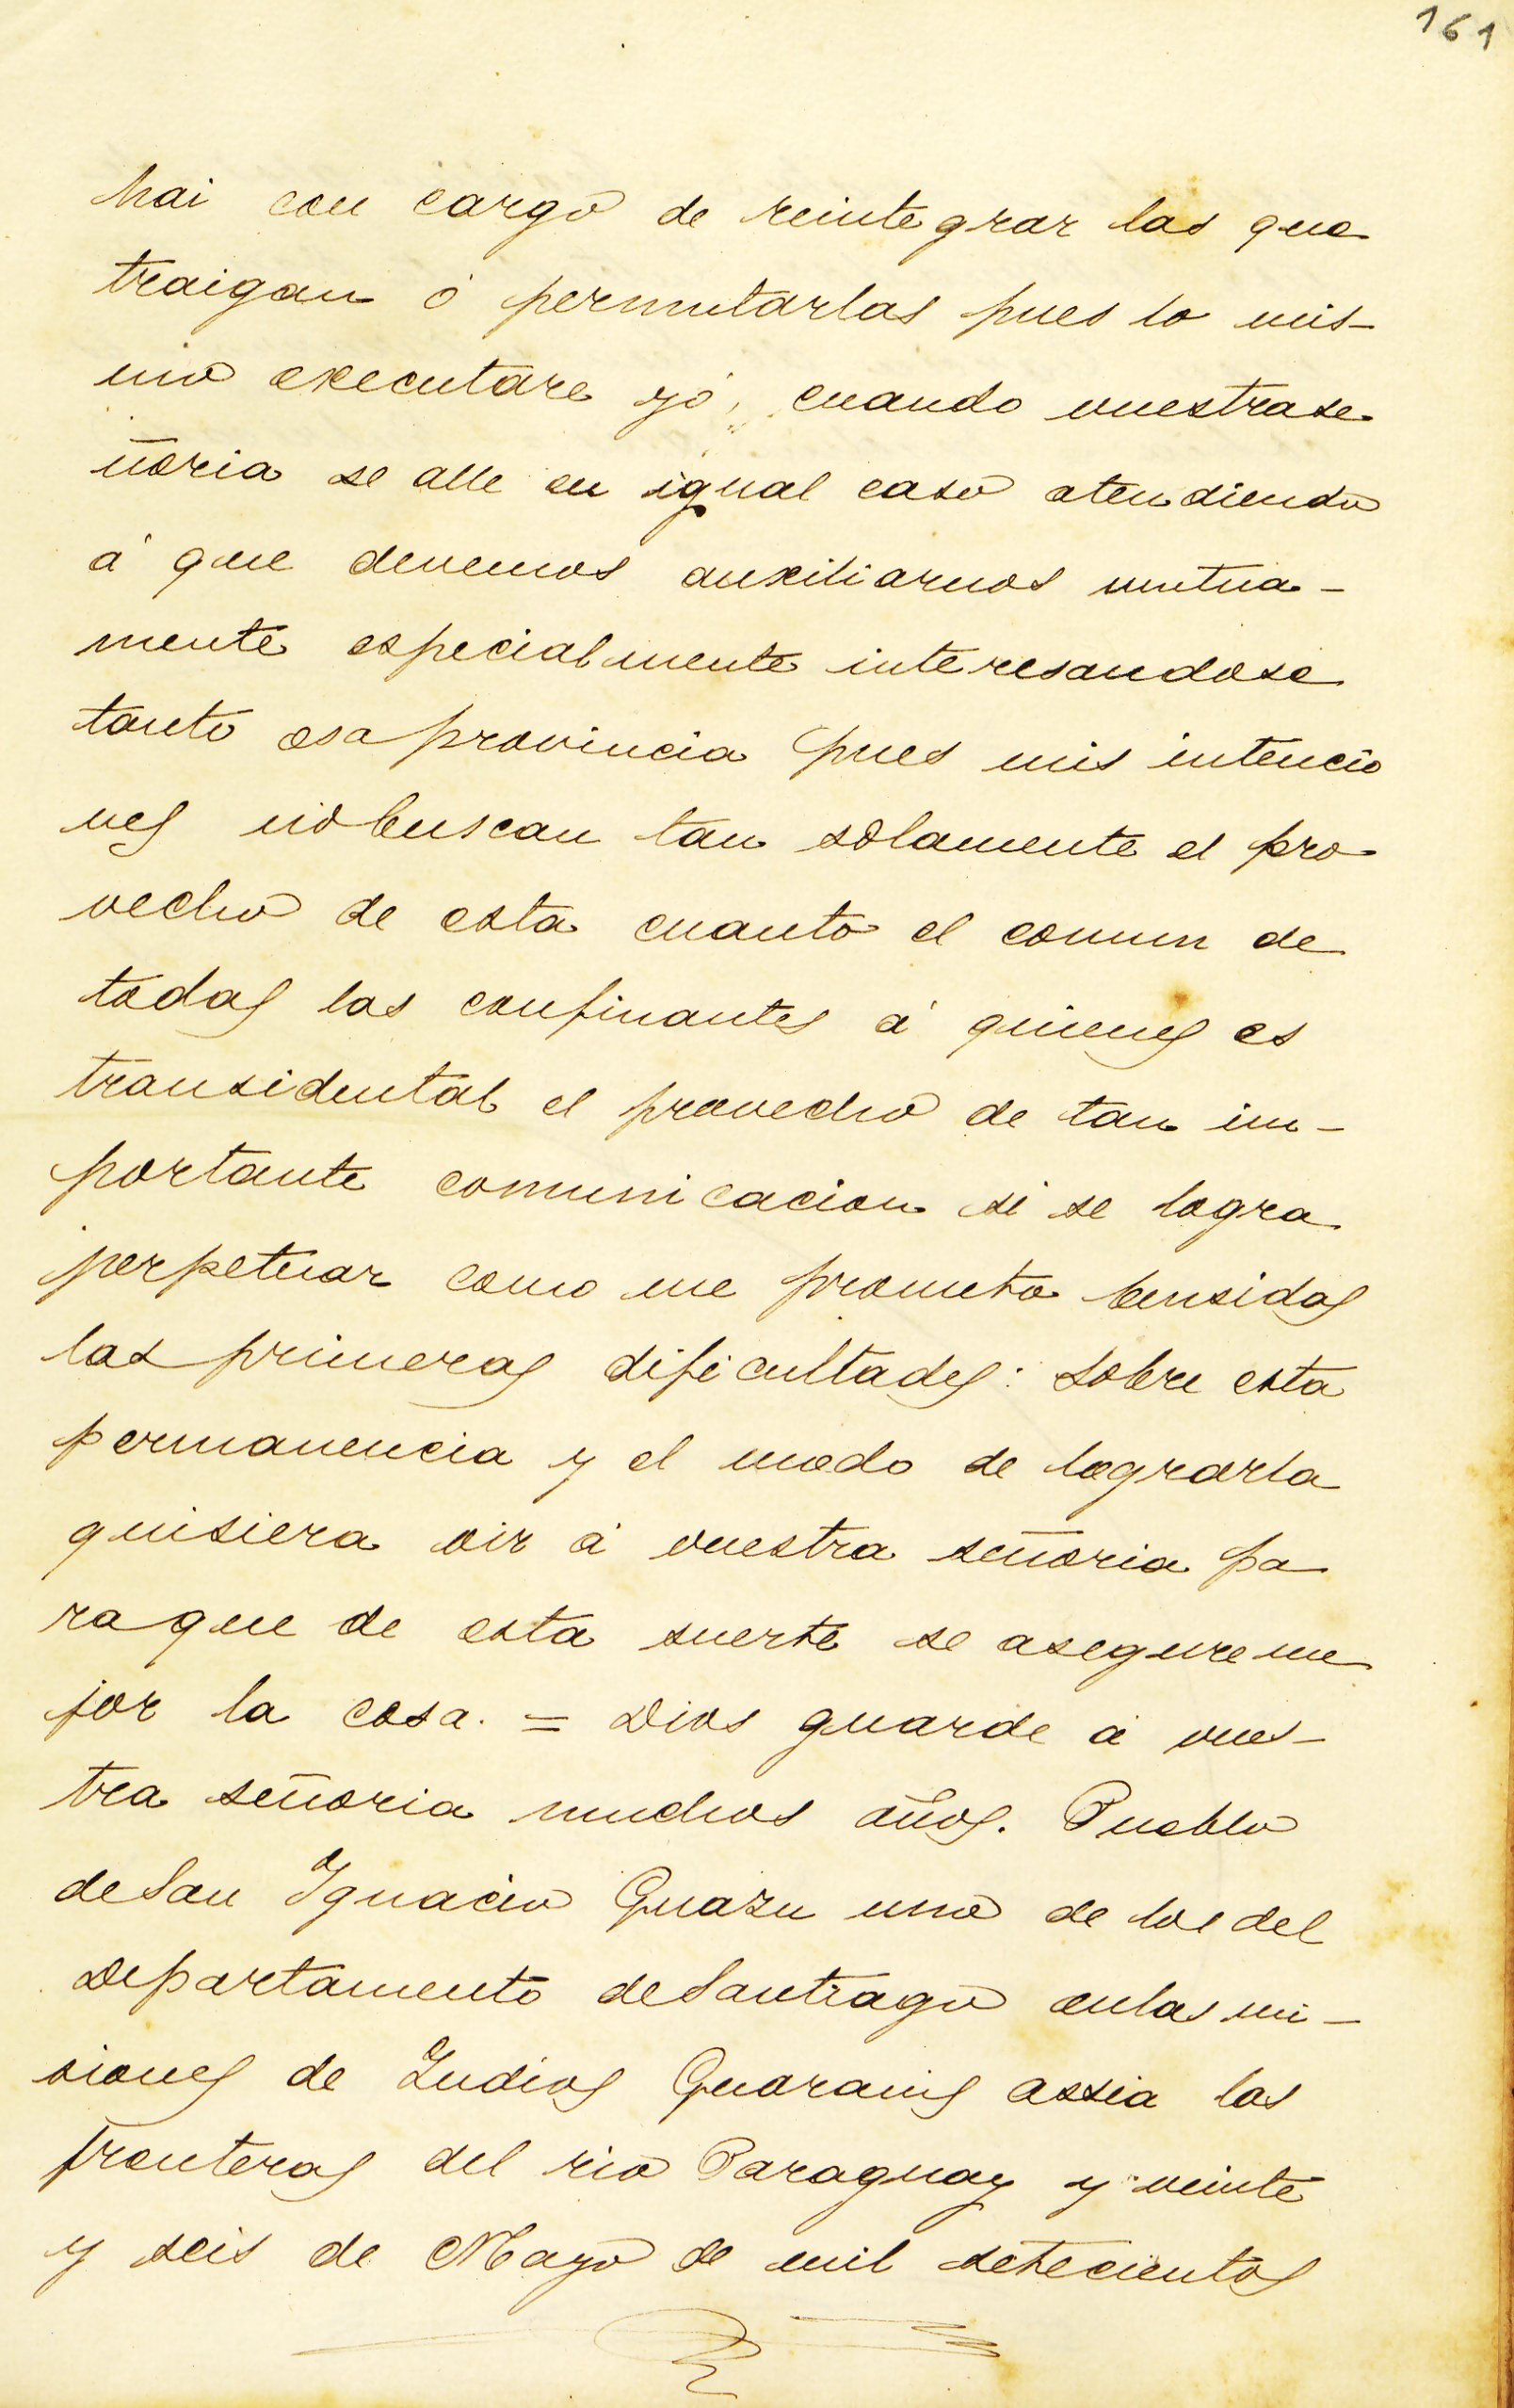 161
hai con cargo de reintegrar las que
traigan ó permutarlas pues lo mis-
mo executare yó, cuando vuestrase
ñoria se alle en igual caso atendiendo
á que devemos auxiliarnos mutua-
mente especialmente interesandose
tanto esa provincia pues mis intencio
nes nobuscan tan solamente el pro
vecho de esta cuanto el comun de
todas las confinantes á quienes es
transidental el provecho de tan im-
portante comunicacion si se logra
perpetuar como me prometo bensidas
las primeras dificultades: sobre esta
permanencia y el modo de lograrla
quisiera oir á vuestra señoria pa
raque de esta suerte se asegure me
jor la cosa. = Dios guarde á vues-
tra señoria muchos años. Pueblo
deSan Ignacio Guazu uno de los del
Departamento deSantiago enlas mi-
siones de Indios Guaranis assia las
fronteras del rio Paraguay y veinte
y seis de Mayo de mil setecientos